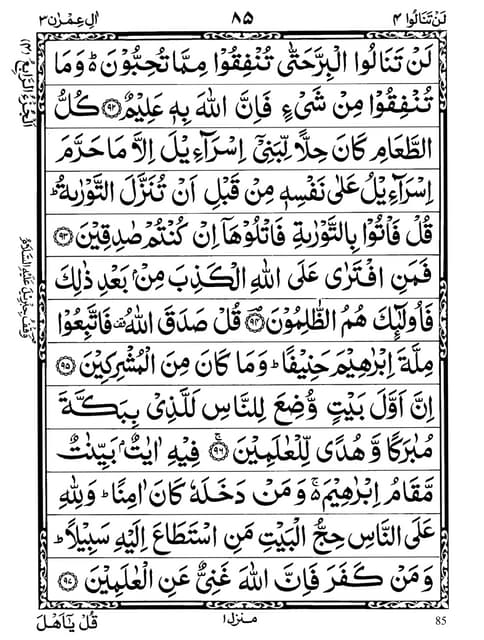 لَنْ تَنَالُوا ٤
٨٥
اٰلِ عِمْرٰن ٣
لَنْ تَنَالُوا الْبِرَّ حَتّٰى تُنْفِقُوْا مِمَّا تُحِبُّوْنَ ؕ وَمَا
تُنْفِقُوْا مِنْ شَىْءٍ فَاِنَّ اللّٰهَ بِهٖ عَلِيْمٌ ﴿۹۲﴾ كُلُّ
الطَّعَامِ كَانَ حِلًّا لِّبَنِىْۤ اِسْرَآءِيْلَ اِلَّا مَا حَرَّمَ
اِسْرَآءِيْلُ عَلٰى نَفْسِهٖ مِنْ قَبْلِ اَنْ تُنَزَّلَ التَّوْرٰىةُ ؕ
قُلْ فَاْتُوْا بِالتَّوْرٰىةِ فَاتْلُوْهَاۤ اِنْ كُنْتُمْ صٰدِقِيْنَ ﴿۹۳﴾
فَمَنِ افْتَرٰى عَلَى اللّٰهِ الْكَذِبَ مِنْۢ بَعْدِ ذٰلِكَ
فَاُولٰٓئِكَ هُمُ الظّٰلِمُوْنَ ﴿۹۴﴾ قُلْ صَدَقَ اللّٰهُ فَاتَّبِعُوْا
مِلَّةَ اِبْرٰهِيْمَ حَنِيْفًا ؕ وَمَا كَانَ مِنَ الْمُشْرِكِيْنَ ﴿۹۵﴾
اِنَّ اَوَّلَ بَيْتٍ وُّضِعَ لِلنَّاسِ لَلَّذِىْ بِبَكَّةَ
مُبٰرَكًا وَّهُدًى لِّلْعٰلَمِيْنَ ﴿۹۶﴾ فِيْهِ اٰيٰتٌۢ بَيِّنٰتٌ
مَّقَامُ اِبْرٰهِيْمَ ۚ وَمَنْ دَخَلَهٗ كَانَ اٰمِنًا ؕ وَلِلّٰهِ
عَلَى النَّاسِ حِجُّ الْبَيْتِ مَنِ اسْتَطَاعَ اِلَيْهِ سَبِيْلًا ؕ
وَمَنْ كَفَرَ فَاِنَّ اللّٰهَ غَنِىٌّ عَنِ الْعٰلَمِيْنَ ﴿۹۷﴾
اَلْجُزْءُ الرَّابِعُ (٤)
وَقْفُ جِبْرِيْلَ عَلَيْهِ السَّلَامُ
85
منزل ١
قُلْ يٰۤاَهْلَ